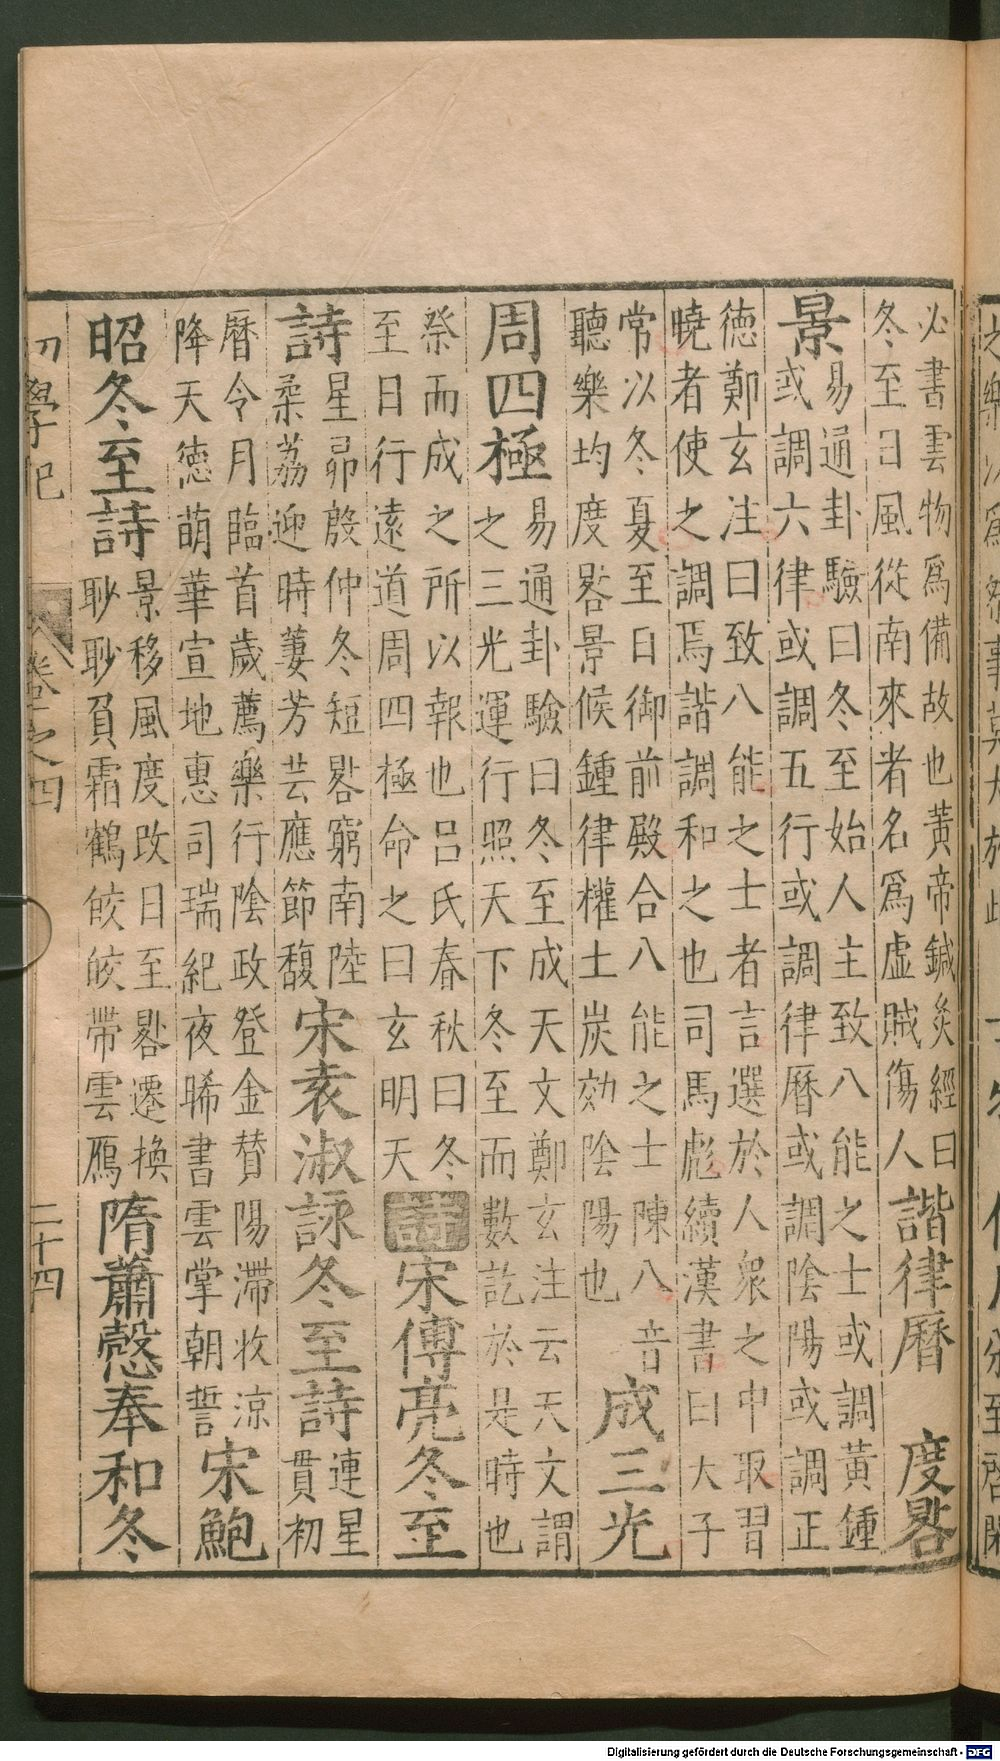 必書雲物爲備故也黃帝鍼灸經曰
冬至日風從南來者名爲虛賊傷人
諧律曆　度晷
景
易通卦驗曰冬至始人主致八能之士或調黃鍾
或調六律或調五行或調律曆或調陰陽或調正
德鄭玄注曰致八能之士者言選於人衆之中取習
曉者使之調焉諧調和之也司馬彪續漢書曰大子
常以冬夏至日御前殿合八能之士陳八音
聽樂均度晷景候鍾律權土炭効陰陽也
成三光
周四極
易通卦驗曰冬至成天文鄭玄注云天文謂
之三光運行照天下冬至而數訖於是時也
祭而成之所以報也呂氏春秋曰冬
至日行遠道周四極命之曰玄明天
宋傅亮冬至
詩
星昴殷仲冬短晷窮南陸
柔荔迎時萋芳芸應節馥
宋袁淑詠冬至詩
連星
貫初
曆令月臨首歲薦樂行陰政登金贊陽滯收涼
降天德萌華宣地惠司瑞紀夜晞書雲掌朝誓
宋鮑
昭冬至詩
景移風度改日至晷遷換
眇眇負霜鶴皎皎帶雲鴈
隋蕭慤奉和冬
初學記
卷之四
二十四
Digitalisierung gefördert durch die Deutsche Forschungsgemeinschaft - DFG